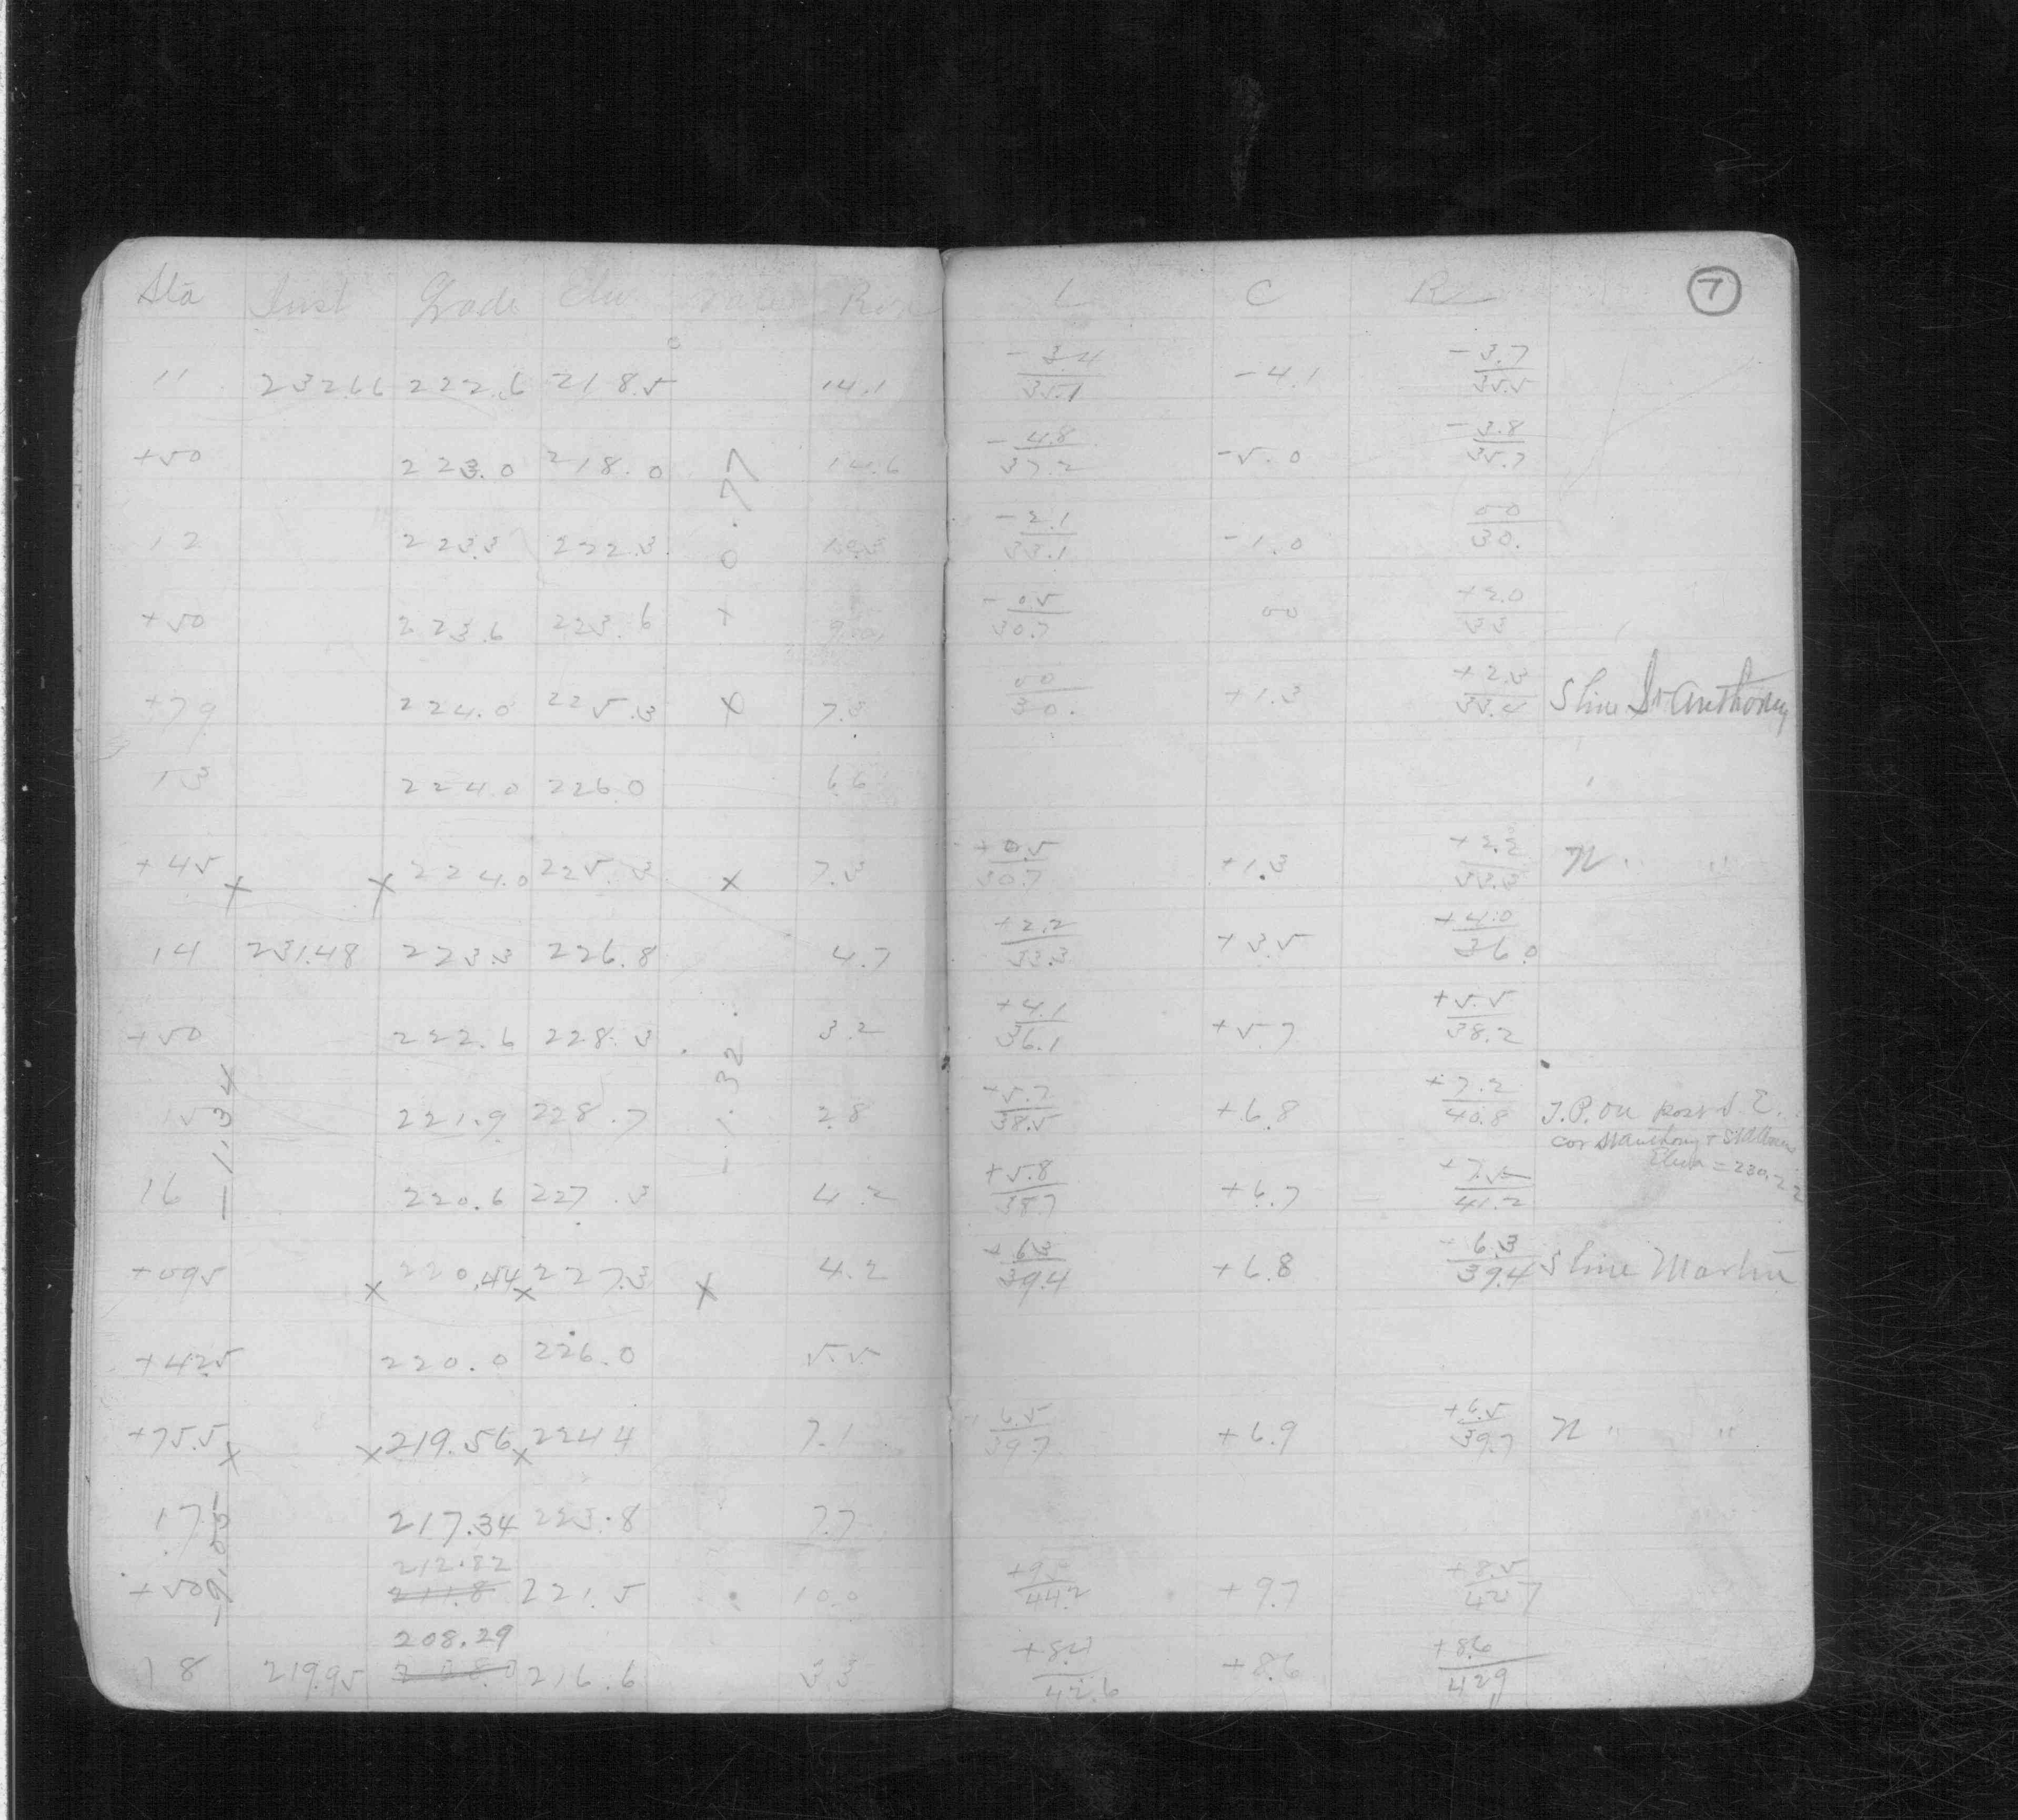 Sta Inst Grade Elev Rate Rod L C R 7
11 232.66 222.6 218.5 14.1 -3.4/35.1 -4.1 -3.7/35.5
+50 223.0 218.0 14.6 -4.8/37.2 -5.0 -3.8/35.7
12 223.3 222.3 10.3 -2.1/33.1 -1.0 00/30.
+50 223.6 223.6 9.0 -0.5/30.7 00 +2.0/33
+0.77
+79 224.0 225.3 x 7.3 00/30. +1.3 +2.3/33.4 S line St Anthony
13 224.0 226.0 6.6
+45 x x 224.0 225.3 x 7.3 +0.5/30.7 +1.3 +2.2/33.3 N " "
14 231.48 223.3 226.8 4.7 +2.2/33.3 +3.5 +4.0/36.0
+50 222.6 228.3 3.2 +4.1/36.1 +5.7 +5.5/38.2
-1.34
-1.32
15 221.9 228.7 2.8 +5.7/38.5 +6.8 +7.2/40.8 T.P. on S.E.
cor St Anthony +
Elev = 230.22
16 220.6 227.3 4.2 +5.8/38.7 +6.7 +7.5/41.2
+095 x 220.44 x 227.3 x 4.2 +6.3/39.4 +6.8 -6.3/39.4 S line Martin
+42.5 220.0 226.0 5.5
+75.5 x x 219.56 x 224.4 7.1 +6.5/39.7 +6.9 +6.5/39.7 N " "
17 217.34 223.8 7.7
-9.05
212.82
+50 211.8 221.5 10.0 44.2 +9.7 +8.5/42.7
208.29
18 219.95 216.6 3.3 +8.4/42.6 +8.6 +8.6/42.9